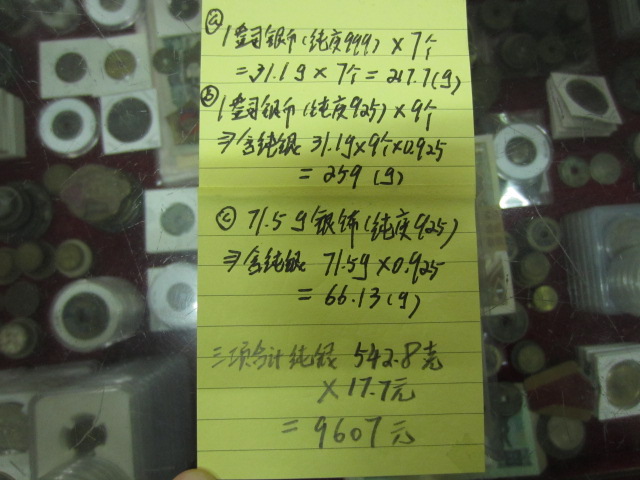 ⓐ
1盎司银币(纯度999) × 7个
= 31.1g × 7个 = 217.7(g)
ⓑ
1盎司银币(纯度925) × 9个
⇒含纯银 31.1g×9个×0.925
= 259 (g)
ⓒ 71.5g银饰(纯度925)
⇒含纯银 71.5g×0.925
= 66.13(g)
三项合计纯银 542.8克
× 17.7元
= 9607元